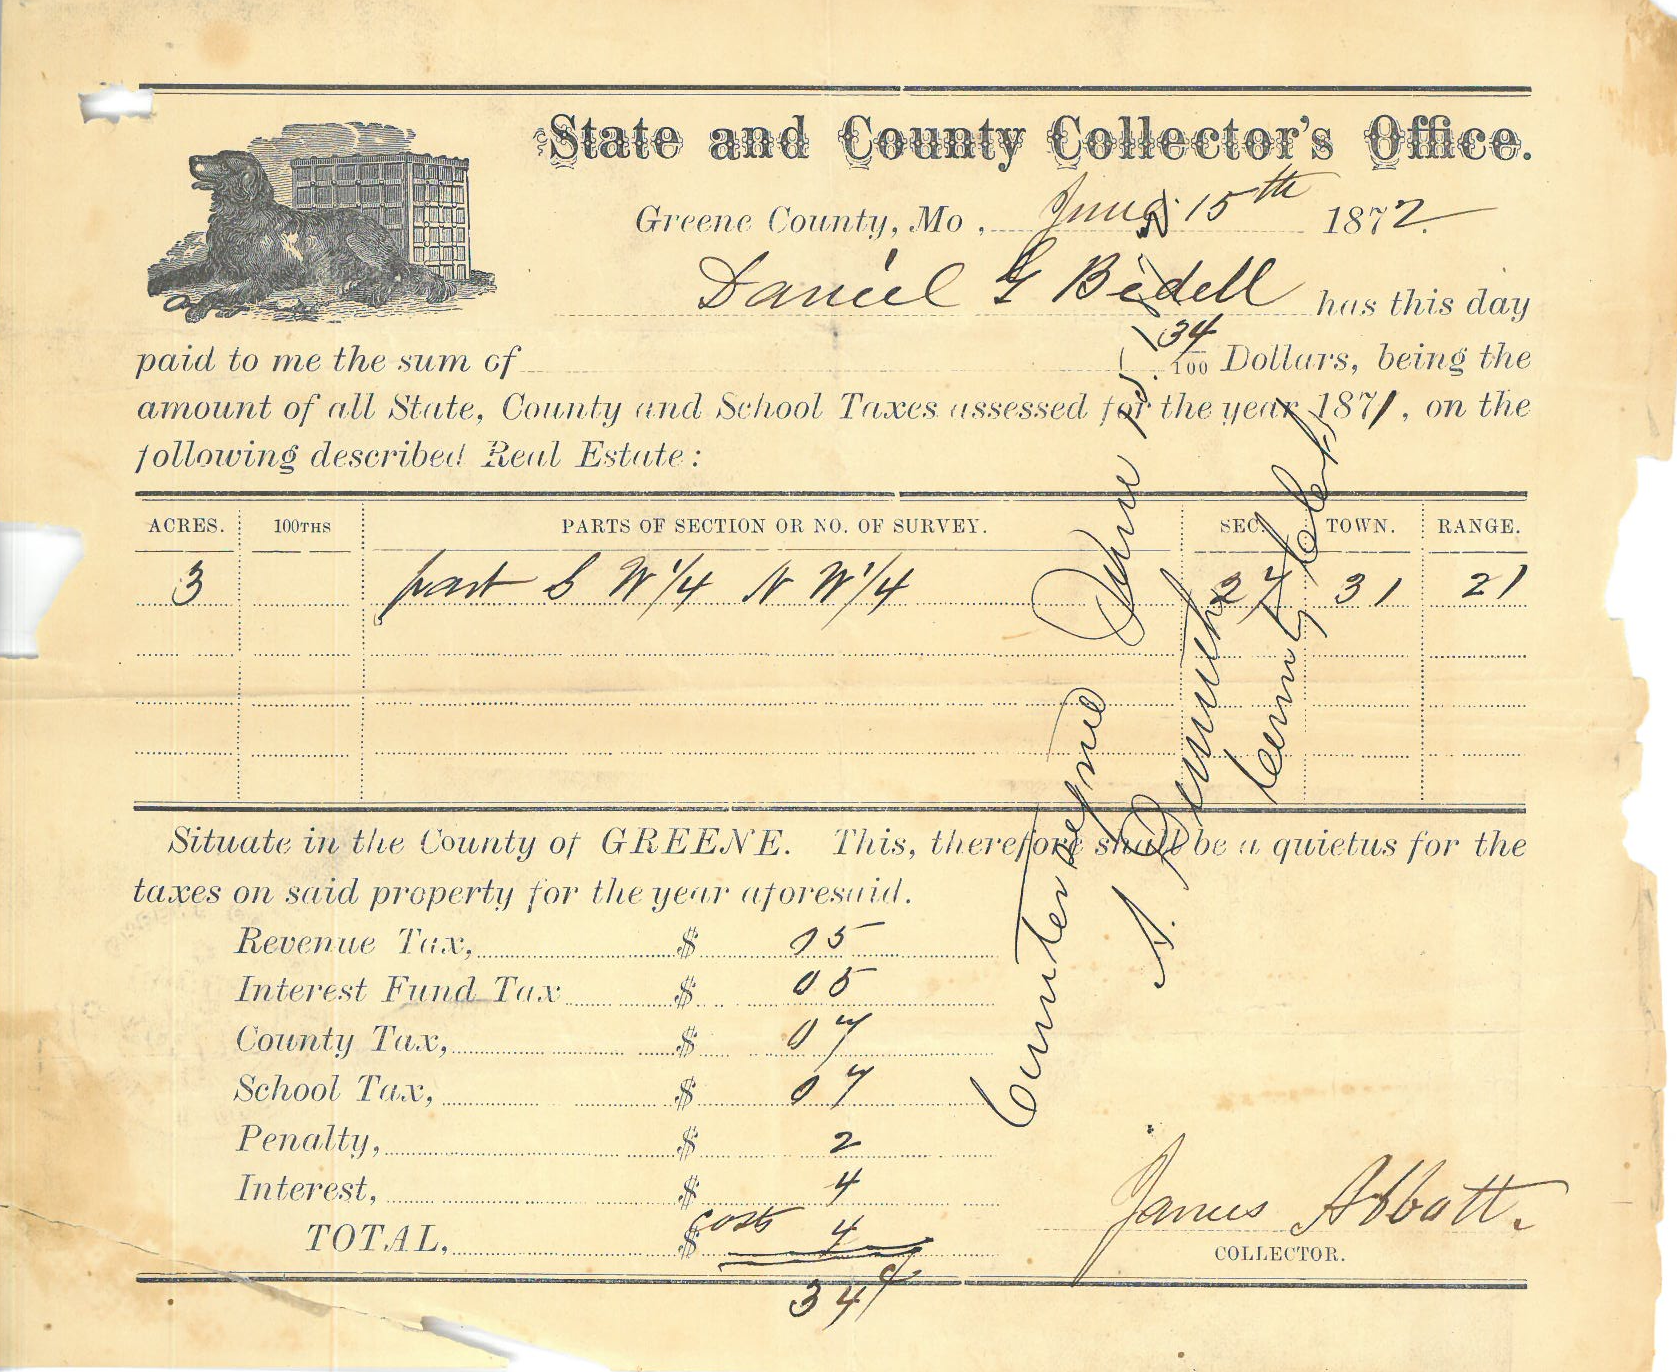 State and County Collector's Office.
Greene County, Mo., June 15th 1872.
Daniel G Bedell has this day
paid to me the sum of 34/100 Dollars, being the
amount of all State, County and School Taxes assessed for the year 1871, on the
following described Real Estate:
ACRES. 100THS PARTS OF SECTION OR NO. OF SURVEY. SEC. TOWN. RANGE.
3 part S W 1/4 N W 1/4 27 31 21
Situate in the County of GREENE. This, therefore shall be a quietus for the
taxes on said property for the year aforesaid.
Revenue Tax, $ 05
Interest Fund Tax $ 05
County Tax, $ 07
School Tax, $ 07
Penalty, $ 2
Interest, $ 4
TOTAL, $ costs 4
34
James Abbott.
COLLECTOR.
Countersigned June 15,
County Clerk